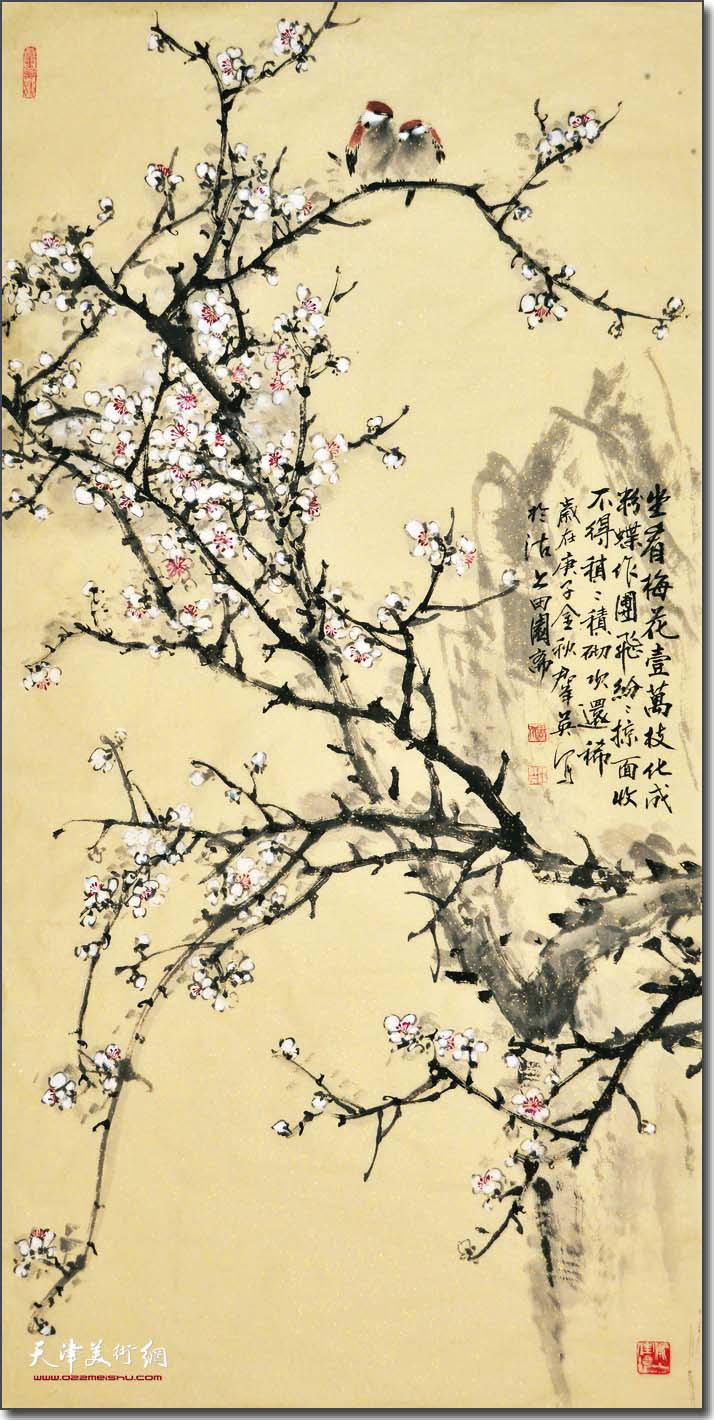 坐看梅花壹萬枝化成
粉蝶作團飛紛〻掠面收
不得積〻積砌吹還稀
歲在庚子金秋 英寫
於沽上田園齋
天津美術網
www.022meishu.com